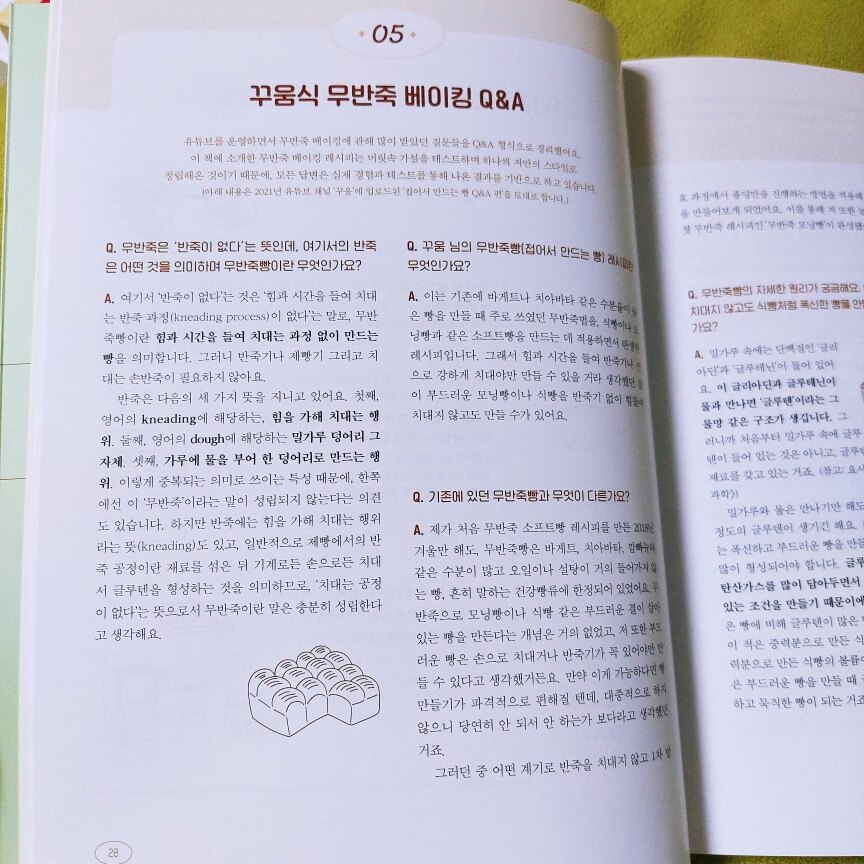 05
꾸움식 무반죽 베이킹 Q&A
유튜브를 운영하면서 무반죽 베이킹에 관해 많이 받았던 질문들을 Q&A 형식으로 정리했어요.
이 책에 소개한 무반죽 베이킹 레시피는 머릿속 가설을 테스트하며 하나씩 저만의 스타일로
정립해온 것이기 때문에, 모든 답변은 실제 경험과 테스트를 통해 나온 결과를 기반으로 하고 있습니다.
(아래 내용은 2021년 유튜브 채널 '꾸움'에 업로드된 '접어서 만드는 빵 Q&A 편'을 토대로 합니다.)
Q. 무반죽은 '반죽이 없다'는 뜻인데, 여기서의 반죽
은 어떤 것을 의미하며 무반죽빵이란 무엇인가요?
A. 여기서 '반죽이 없다'는 것은 '힘과 시간을 들여 치대
는 반죽 과정(kneading process)이 없다'는 말로, 무반
죽빵이란 힘과 시간을 들여 치대는 과정 없이 만드는
빵을 의미합니다. 그러니 반죽기나 제빵기 그리고 치
대는 손반죽이 필요하지 않아요.
반죽은 다음의 세 가지 뜻을 지니고 있어요. 첫째,
영어의 kneading에 해당하는, 힘을 가해 치대는 행
위. 둘째, 영어의 dough에 해당하는 밀가루 덩어리 그
자체. 셋째, 가루에 물을 부어 한 덩어리로 만드는 행
위. 이렇게 중복되는 의미로 쓰이는 특성 때문에, 한쪽
에선 이 '무반죽'이라는 말이 성립되지 않는다는 의견
도 있습니다. 하지만 반죽에는 힘을 가해 치대는 행위
라는 뜻(kneading)도 있고, 일반적으로 제빵에서의 반
죽 공정이란 재료를 섞은 뒤 기계로든 손으로든 치대
서 글루텐을 형성하는 것을 의미하므로, '치대는 공정
이 없다'는 뜻으로서 무반죽이란 말은 충분히 성립한다
고 생각해요.
28
Q. 꾸움 님의 무반죽빵(접어서 만드는 빵) 레시피란
무엇인가요?
A. 이는 기존에 바게트나 치아바타 같은 수분율이 높
은 빵을 만들 때 주로 쓰였던 무반죽법을, 식빵이나 모
닝빵과 같은 소프트빵을 만드는 데 적용하면서 탄생한
레시피입니다. 그래서 힘과 시간을 들여 반죽기나 손
으로 강하게 치대야만 만들 수 있을 거라 생각했던 결
이 부드러운 모닝빵이나 식빵을 반죽기 없이 힘들여
치대지 않고도 만들 수가 있어요.
Q. 기존에 있던 무반죽빵과 무엇이 다르가요?
A. 제가 처음 무반죽 소프트빵 레시피를 만든 2018년
겨울만 해도, 무반죽빵은 바게트, 치아바타, 깜빠뉴와
같은 수분이 많고 오일이나 설탕이 거의 들어가지 않
는 빵, 흔히 말하는 건강빵류에 한정되어 있었어요. 무
반죽으로 모닝빵이나 식빵 같은 부드러운 결이 살아
있는 빵을 만든다는 개념은 거의 없었고, 저 또한 부드
러운 빵은 손으로 치대거나 반죽기가 꼭 있어야만 만
들 수 있다고 생각했거든요. 만약 이게 가능하다면 빵
만들기가 파격적으로 편해질 텐데, 대중적으로 하지
않으니 당연히 안 되서 안 하는가 보다라고 생각했던
거죠.
그러던 중 어떤 계기로 반죽을 치대지 않고 1차 발
효 과정에서 폴딩만을 진행하는 방법을 적용해
을 만들어보게 되었어요. 이를 통해 저 또한
첫 무반죽 레시피인 '무반죽 모닝빵'이 완성됐
Q. 무반죽빵의 자세한 원리가 궁금해요.
치대지 않고도 식빵처럼 폭신한 빵을 만
가요?
A. 밀가루 속에는 단백질인 '글리
아딘'과 '글루테닌'이 들어 있어
요. 이 글리아딘과 글루테닌이
물과 만나면 '글루텐'이라는 그
물망 같은 구조가 생깁니다. 그
러니까 처음부터 밀가루 속에 글루
텐이 들어 있는 것은 아니고, 글루텐
재료를 갖고 있는 거죠. (참고: 요시
과학》)
밀가루와 물은 만나기만 해도
정도의 글루텐이 생기긴 해요.
는 폭신하고 부드러운 빵을 만들
많이 형성되어야 합니다. 글루
탄산가스를 많이 담아두면서
있는 조건을 만들기 때문이에
은 빵에 비해 글루텐이 많은
이 적은 중력분으로 만든 식
력분으로 만든 식빵의 볼륨이
은 부드러운 빵을 만들 때
하고 묵직한 빵이 되는 거죠